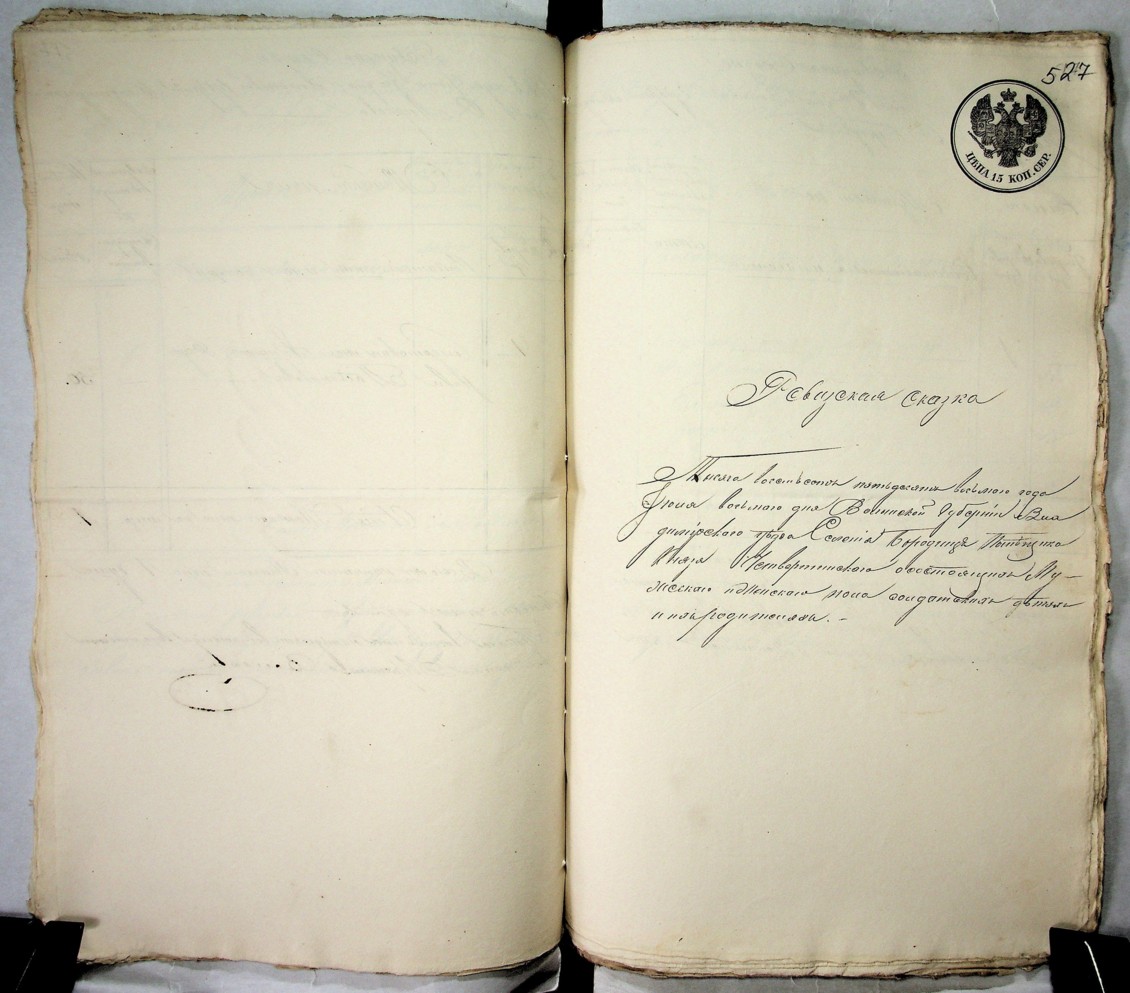 527
ЦѢНА 15 КОП. СЕР.
Ревизская сказка
Тысяча восемьсотъ пятьдесятъ восьмаго года
Іюня восьмаго дня Волынской Губерніи Вла
димірскаго уѣзда Селенія Бородчицъ Помѣщика
Князя Четвертинскаго о состоящихъ Му-
жескаго и Женскаго пола солдатскихъ дѣтяхъ
и ихъ родителяхъ. -